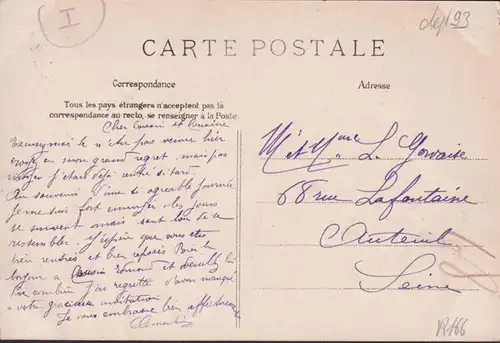 I
dep 93
CARTE POSTALE
Correspondance
Adresse
Tous les pays étrangers n'acceptent pas la
correspondance au recto, se renseigner à la Poste
Cher Cousin et Cousine
Excusez moi je n'ai pas venue hier
mon grand regret, mais pas
j'étais déjà rentré si tard.
Au souvenir d'une si agréable journée
Je me suis fort les jours
se suivent mais sont loin de se
ressembler. J'espère que vous êtes
bien rentrés et bien reposés
bonjour à Cousin Edmond et
combien j'ai regretté d'avoir manqué
à votre gracieuse invitation
Je vous embrasse bien affectueusement
Clemart
M et Mme L. Gervaise
68 rue Lafontaine
Auteuil
Seine
R166